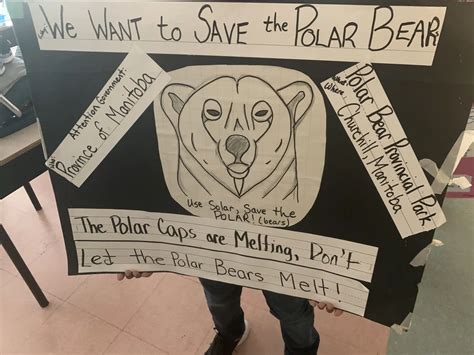 We WANT to SAVE the POLAR BEAR
Attention Government:
Province of Manitoba
Polar Bear Provincial Park
Churchill, Manitoba
Where
Use Solar, Save the
POLAR! (bears)
The Polar Caps are Melting, Don't
Let the Polar Bears Melt!